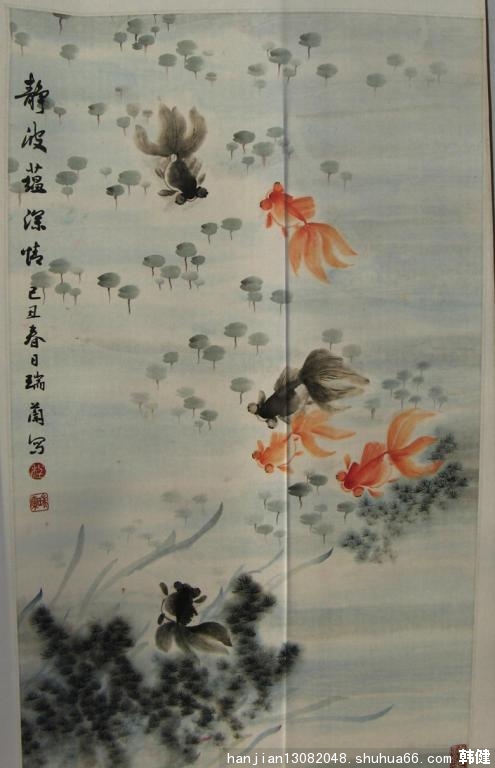 静波蕴深情己丑春日瑞兰写
hanjian13082048.shuhua66.com 韩健